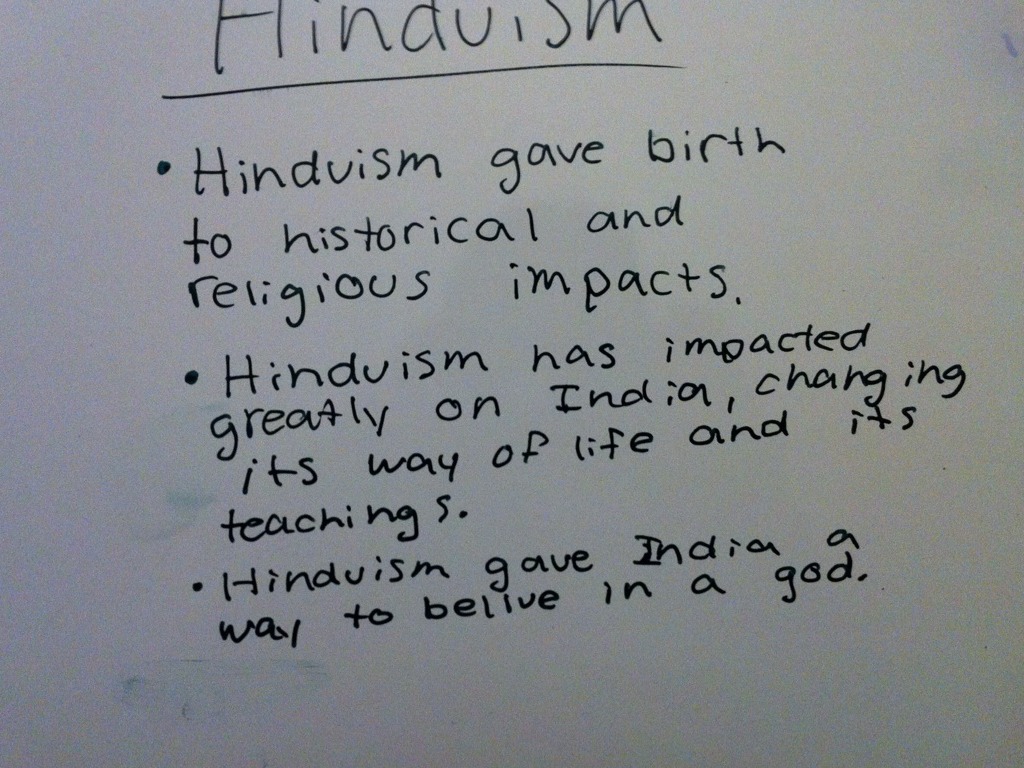 Hinduism
• Hinduism gave birth
to historical and
religious impacts.
• Hinduism has impacted
greatly on India, changing
its way of life and its
teachings.
• Hinduism gave India a
way to belive in a god.